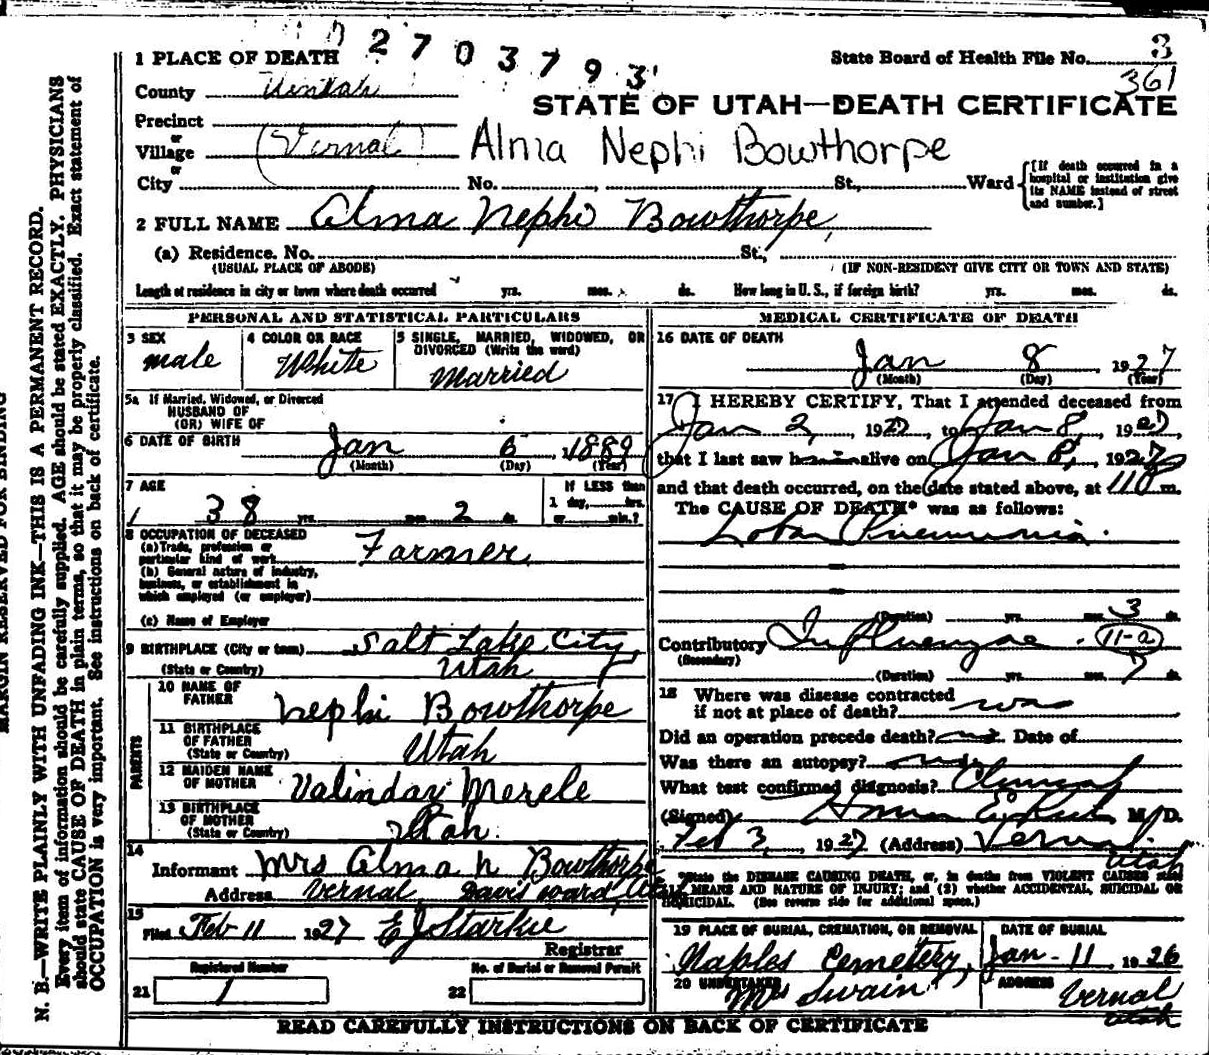 2703793
1 PLACE OF DEATH
State Board of Health File No. 3
361
County Uintah
STATE OF UTAH—DEATH CERTIFICATE
Precinct
or
Village (Vernal)
Alma Nephi Bowthorpe
or
City No. St., Ward
[If death occurred in a hospital or institution give its NAME instead of street and number.]
2 FULL NAME Alma Nephi Bowthorpe,
(a) Residence. No. St.,
(USUAL PLACE OF ABODE) (IF NON-RESIDENT GIVE CITY OR TOWN AND STATE)
Length of residence in city or town where death occurred yrs. mos. ds. How long in U. S., if foreign birth? yrs. mos. ds.
PERSONAL AND STATISTICAL PARTICULARS
3 SEX
male
4 COLOR OR RACE
White
5 SINGLE, MARRIED, WIDOWED, OR
DIVORCED (Write the word)
Married
5a If Married, Widowed, or Divorced
HUSBAND OF
(OR) WIFE OF
6 DATE OF BIRTH Jan 6, 1889
(Month) (Day) (Year)
7 AGE
38 yrs. mos. 2 ds.
If LESS than
1 day, hrs.
or min.?
8 OCCUPATION OF DECEASED
(a) Trade, profession or
particular kind of work Farmer
(b) General nature of industry,
business, or establishment in
which employed (or employer)
(c) Name of Employer
9 BIRTHPLACE (City or town) Salt Lake City,
(State or Country) Utah
PARENTS
10 NAME OF
FATHER Nephi Bowthorpe
11 BIRTHPLACE
OF FATHER
(State or Country) Utah
12 MAIDEN NAME
OF MOTHER Valinday Merele
13 BIRTHPLACE
OF MOTHER
(State or Country) Utah
14
Informant Mrs Alma N Bowthorpe
Address Vernal, Davis ward,
15
Filed Feb 11 1927 E J Starkie
Registrar
Registered Number
21 1
No. of Burial or Removal Permit
22
MEDICAL CERTIFICATE OF DEATH
16 DATE OF DEATH
Jan 8 1927
(Month) (Day) (Year)
17 I HEREBY CERTIFY, That I attended deceased from
Jan 2, 1927, to Jan 8, 1927,
that I last saw h alive on Jan 8, 1927
and that death occurred, on the date stated above, at m.
The CAUSE OF DEATH* was as follows:
Lobar Pneumonia
(Duration) yrs. mos. 3 ds.
Contributory Influenza (11-a)
(Secondary)
(Duration) yrs. mos. 7 ds.
18 Where was disease contracted
if not at place of death? was
Did an operation precede death? Date of
Was there an autopsy?
What test confirmed diagnosis? Clinical
(Signed) M. D.
Feb 3, 1927 (Address) Vernal
Utah
*State the DISEASE CAUSING DEATH, or, in deaths from VIOLENT CAUSES state
MEANS AND NATURE OF INJURY; and (2) whether ACCIDENTAL, SUICIDAL OR
HOMICIDAL. (See reverse side for additional space.)
19 PLACE OF BURIAL, CREMATION, OR REMOVAL
Naples Cemetery,
DATE OF BURIAL
Jan-11, 1926
20 UNDERTAKER
Swain
ADDRESS
Vernal
Utah
READ CAREFULLY INSTRUCTIONS ON BACK OF CERTIFICATE
MARGIN RESERVED FOR BINDING
N. B.—WRITE PLAINLY WITH UNFADING INK—THIS IS A PERMANENT RECORD.
Every item of information should be carefully supplied. AGE should be stated EXACTLY. PHYSICIANS
should state CAUSE OF DEATH in plain terms, so that it may be properly classified. Exact statement of
OCCUPATION is very important. See instructions on back of certificate.